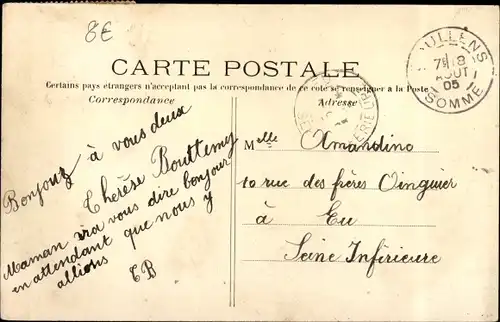 8E
CARTE POSTALE
Certains pays étrangers n'acceptant pas la correspondance de ce côté se renseigner à la Poste
Correspondance
Adresse
DOULLENS
7E 18
AOUT
05
SOMME
Bonjour à vous deux
Thérèse Bouttemy
Maman ira vous dire bonjour
en attendant que nous y
allions
TB
Melle Amandine
10 rue des frères
à Eu
Seine Inférieure